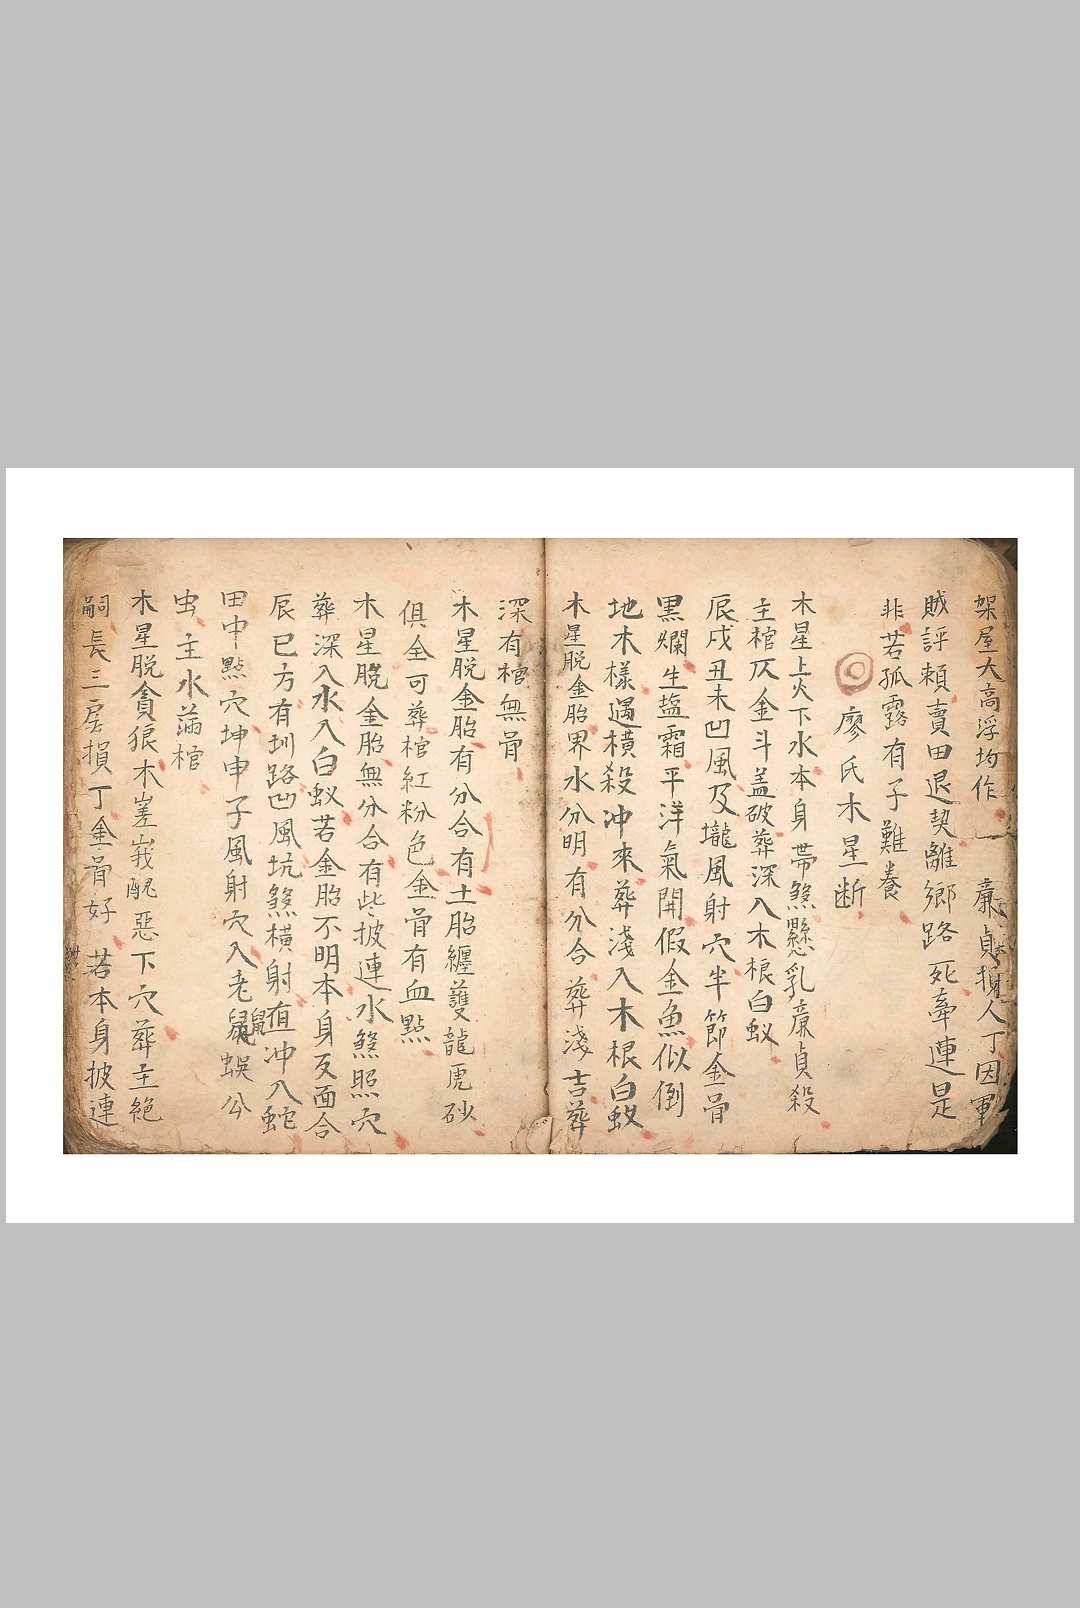 架屋大高浮均作 廉貞損人丁因軍
賊評賴賣田退契離鄉路死牽連是
非若孤露有子難養
廖氏木星断
木星上火下水本身帶煞懸乳廉貞殺
主棺仄金斗盖破葬深入木根白蚁
辰戌丑未凹風及壠風射穴半節金骨
黒爛生塩霜平洋氣開假金魚似倒
地木樣遇橫殺冲來葬淺入木根白蚁
木星脱金胎界水分明有分合葬淺吉葬
深有棺無骨
木星脱金胎有分合有土胎纏䕶龍虎砂
俱全可葬棺紅粉色金骨有血點
木星脱金胎無分合有些披連水煞照穴
葬深入水入白蚁若金胎不明本身反面合
辰巳方有圳路凹風坑煞橫射直冲入蛇
田中點穴坤申子風射穴入老鼠蜈公
虫主水滿棺
木星脱貪狼木嵳峩醜惡下穴葬主絶
嗣長三房損丁金骨好 若本身披連